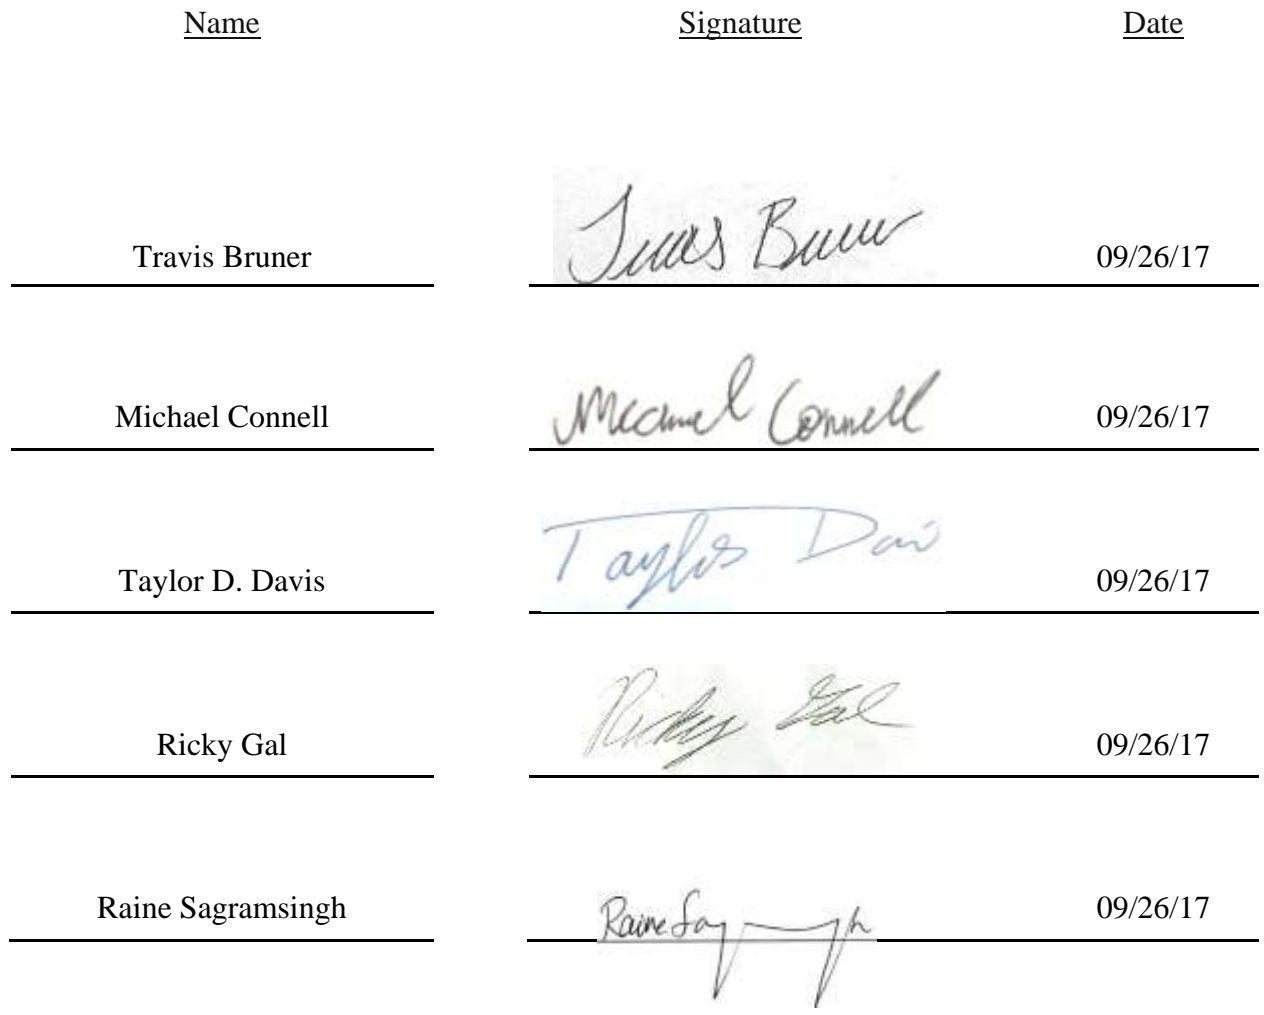 Name Signature Date
Travis Bruner Travis Bruner 09/26/17
Michael Connell Michael Connell 09/26/17
Taylor D. Davis Taylor Davis 09/26/17
Ricky Gal Ricky Gal 09/26/17
Raine Sagramsingh Raine Sagramsingh 09/26/17